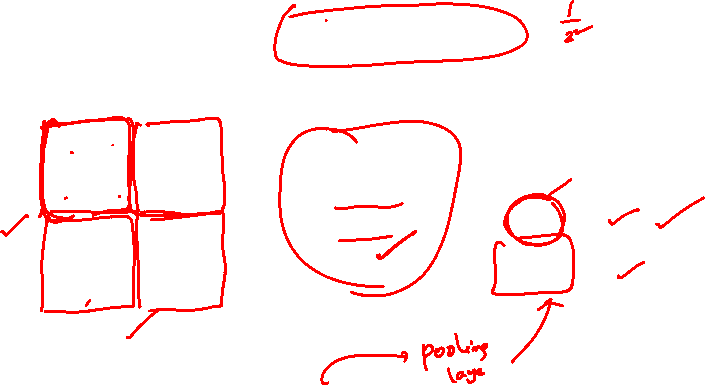 1/2
pooling
laye